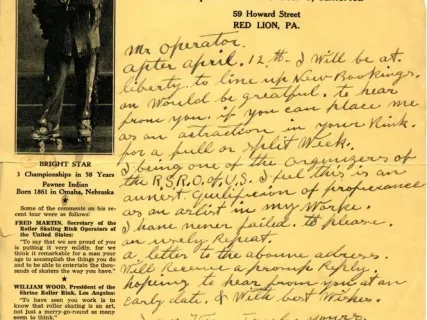 59 Howard Street
RED LION, PA.
Mr Operator.
after april. 12th - I Will be at.
liberty to line up New Bookings.
an Would be greatful. to hear
from you. if you can place me
as an attraction in your Rink.
for a full or split Week.
I being one of the organizers of
the R.S.R.O. of U.S. I feel this is an
of
as an artist in my Worke.
I have never failed. to please.
an Repeat.
a letter to the adress.
Will Receive a Reply.
hopeing to hear from you at an
Early date. & With best Wishes.
yours.
BRIGHT STAR
3 Championships in 38 Years
Pawnee Indian
Born 1861 in Omaha, Nebraska
Some of the comments on his re-
cent tour were as follows:
FRED MARTIN, Secretary of the
Roller Skating Rink Operators of
the United States:
"To say that we are proud of you
is putting it very mildly, for we
think it remarkable for a man your
age to accomplish the things you do
and to be able to entertain the thou-
sands of skaters the way you have."
WILLIAM WOOD, President of the
Shrine Roller Rink, Los Angeles:
"To have seen you work is to
know that roller skating is an art,
not just a merry-go-round as many
seem to think."